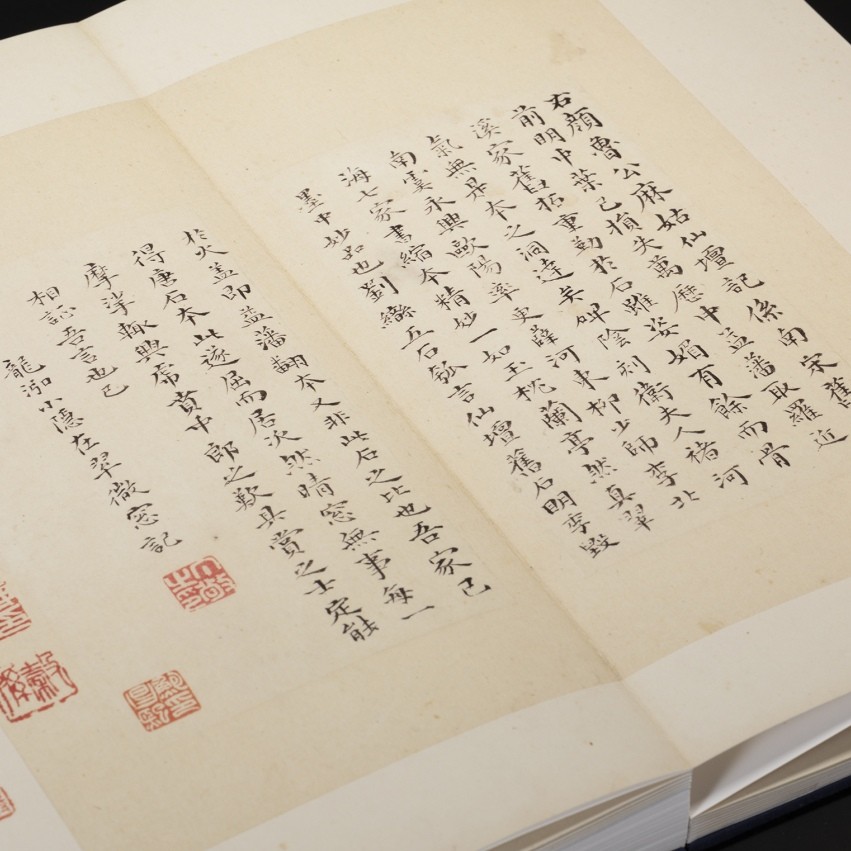 右顏魯公麻姑仙壇記係南宋舊
前明中葉已損失萬歷中益藩取羅近
溪家舊拓重勒於石雖姿媚有餘而骨
氣無是本之洞達矣碑陰刻衛夫人褚河
南虞永興歐陽率更薛河東柳少師李北
海七家書縮本精妙一如玉枕蘭亭然真翠
墨中妙品也劉鑾五石瓠言仙壇舊石明季毀
於火蓋即益藩翻本又非此石之比也吾家已
得唐石本此遂屈而居次然晴窓無事每一
摩挲輒興虎賁中郎之歎具賞之士定能
相吾言也已
龍泓小隱在翠微窓記